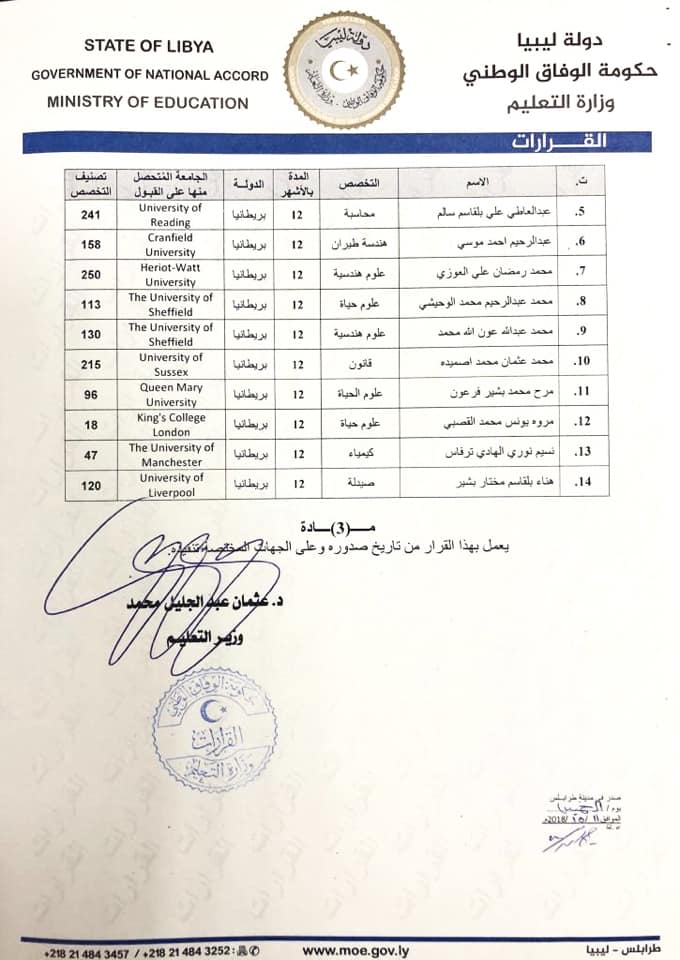 STATE OF LIBYA
GOVERNMENT OF NATIONAL ACCORD
MINISTRY OF EDUCATION
دولة ليبيا
حكومة الوفاق الوطني
وزارة التعليم
القـــــرارات
ت. الاسم التخصص المدة بالأشهر الدولـــة الجامعة المُتحصل منها على القبول تصنيف التخصص
5. عبدالعاطي علي بلقاسم سالم محاسبة 12 بريطانيا University of Reading 241
6. عبدالرحيم احمد موسي هندسة طيران 12 بريطانيا Cranfield University 158
7. محمد رمضان علي العوزي علوم هندسية 12 بريطانيا Heriot-Watt University 250
8. محمد عبدالرحيم محمد الوحيشي علوم حياة 12 بريطانيا The University of Sheffield 113
9. محمد عبدالله عون الله محمد علوم هندسية 12 بريطانيا The University of Sheffield 130
10. محمد عثمان محمد اصميده قانون 12 بريطانيا University of Sussex 215
11. مرح محمد بشير فرعون علوم الحياة 12 بريطانيا Queen Mary University 96
12. مروه يونس محمد القصبي علوم حياة 12 بريطانيا King's College London 18
13. نسيم نوري الهادي ترفاس كيمياء 12 بريطانيا The University of Manchester 47
14. هناء بلقاسم مختار بشير صيدلة 12 بريطانيا University of Liverpool 120
مـــ(3)ـــادة
يعمل بهذا القرار من تاريخ صدوره وعلى الجهات المختصة تنفيذه.
د. عثمان عبد الجليل محمد
وزيـر التعليـم
حكومة الوفاق الوطني
القرارات
وزارة التعليم
صدر في مدينة طرابلس
يوم / الخميس
الموافق 11/ 10/ 2018م
+218 21 484 3457 / +218 21 484 3252
www.moe.gov.ly
طرابلس - ليبيا